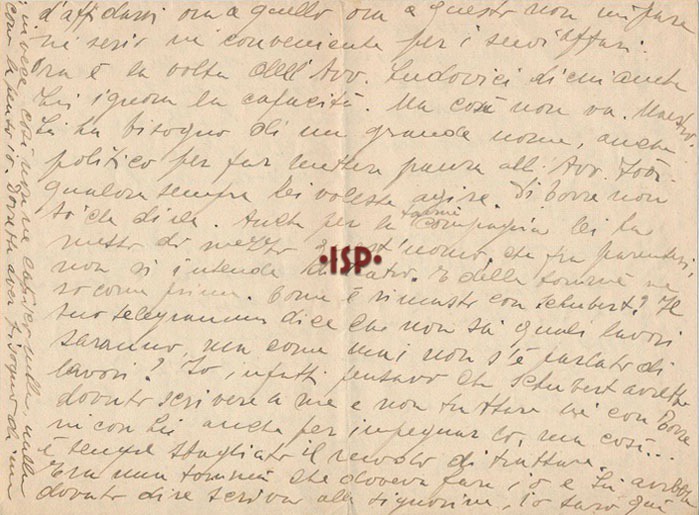 d'affidarsi ora a quello ora a questo non mi pare
nè serio nè conveniente per i suoi affari.
Ora è la volta dell'Avv. Ludovici di chi anche
Lei ignora la capacità. Ma così non va. Maestro.
Lei ha bisogno di un grande nome, anche
politico per far mettere paura all'Avv.
qualora sempre Lei volesse agire. Di Borra non
so che dire. Anche per la Tournée compagnia Lei ha
messo di mezzo quest'uomo, che fra parentesi
non si intende di teatro. E della tournée ne
so come prima. Come è rimasto con Schubert? Il
suo telegramma dice che non sa quali lavori
saranno, ma come mai non s'è parlato di
lavori? Io, infatti pensavo che Schubert avrebbe
dovuto scrivere a me e non trattare nè con Borra
nè con Lei anche per impegnarlo, ma così...
è sempre sbagliato il metodo di trattare.
Era una tournée che doveva fare io e Lei avrebbe
dovuto dire scriva alla signorina, io sarò qui
invece così non ne capisco nulla nulla
come la penso io. Dovrebbe aver bisogno di un
·ISP·